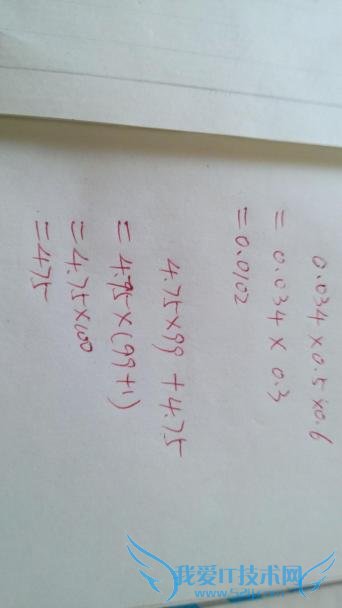 0.034×0.5×0.6
=0.034×0.3
=0.0102
4.75×99+4.75
=4.75×(99+1)
=4.75×100
=475
我爱IT技术网